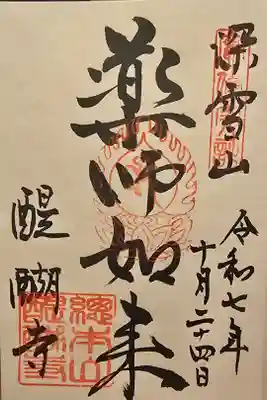 深雪山
令和七年
十月二十四日
薬師如来
醍醐寺
總本山
醍醐寺